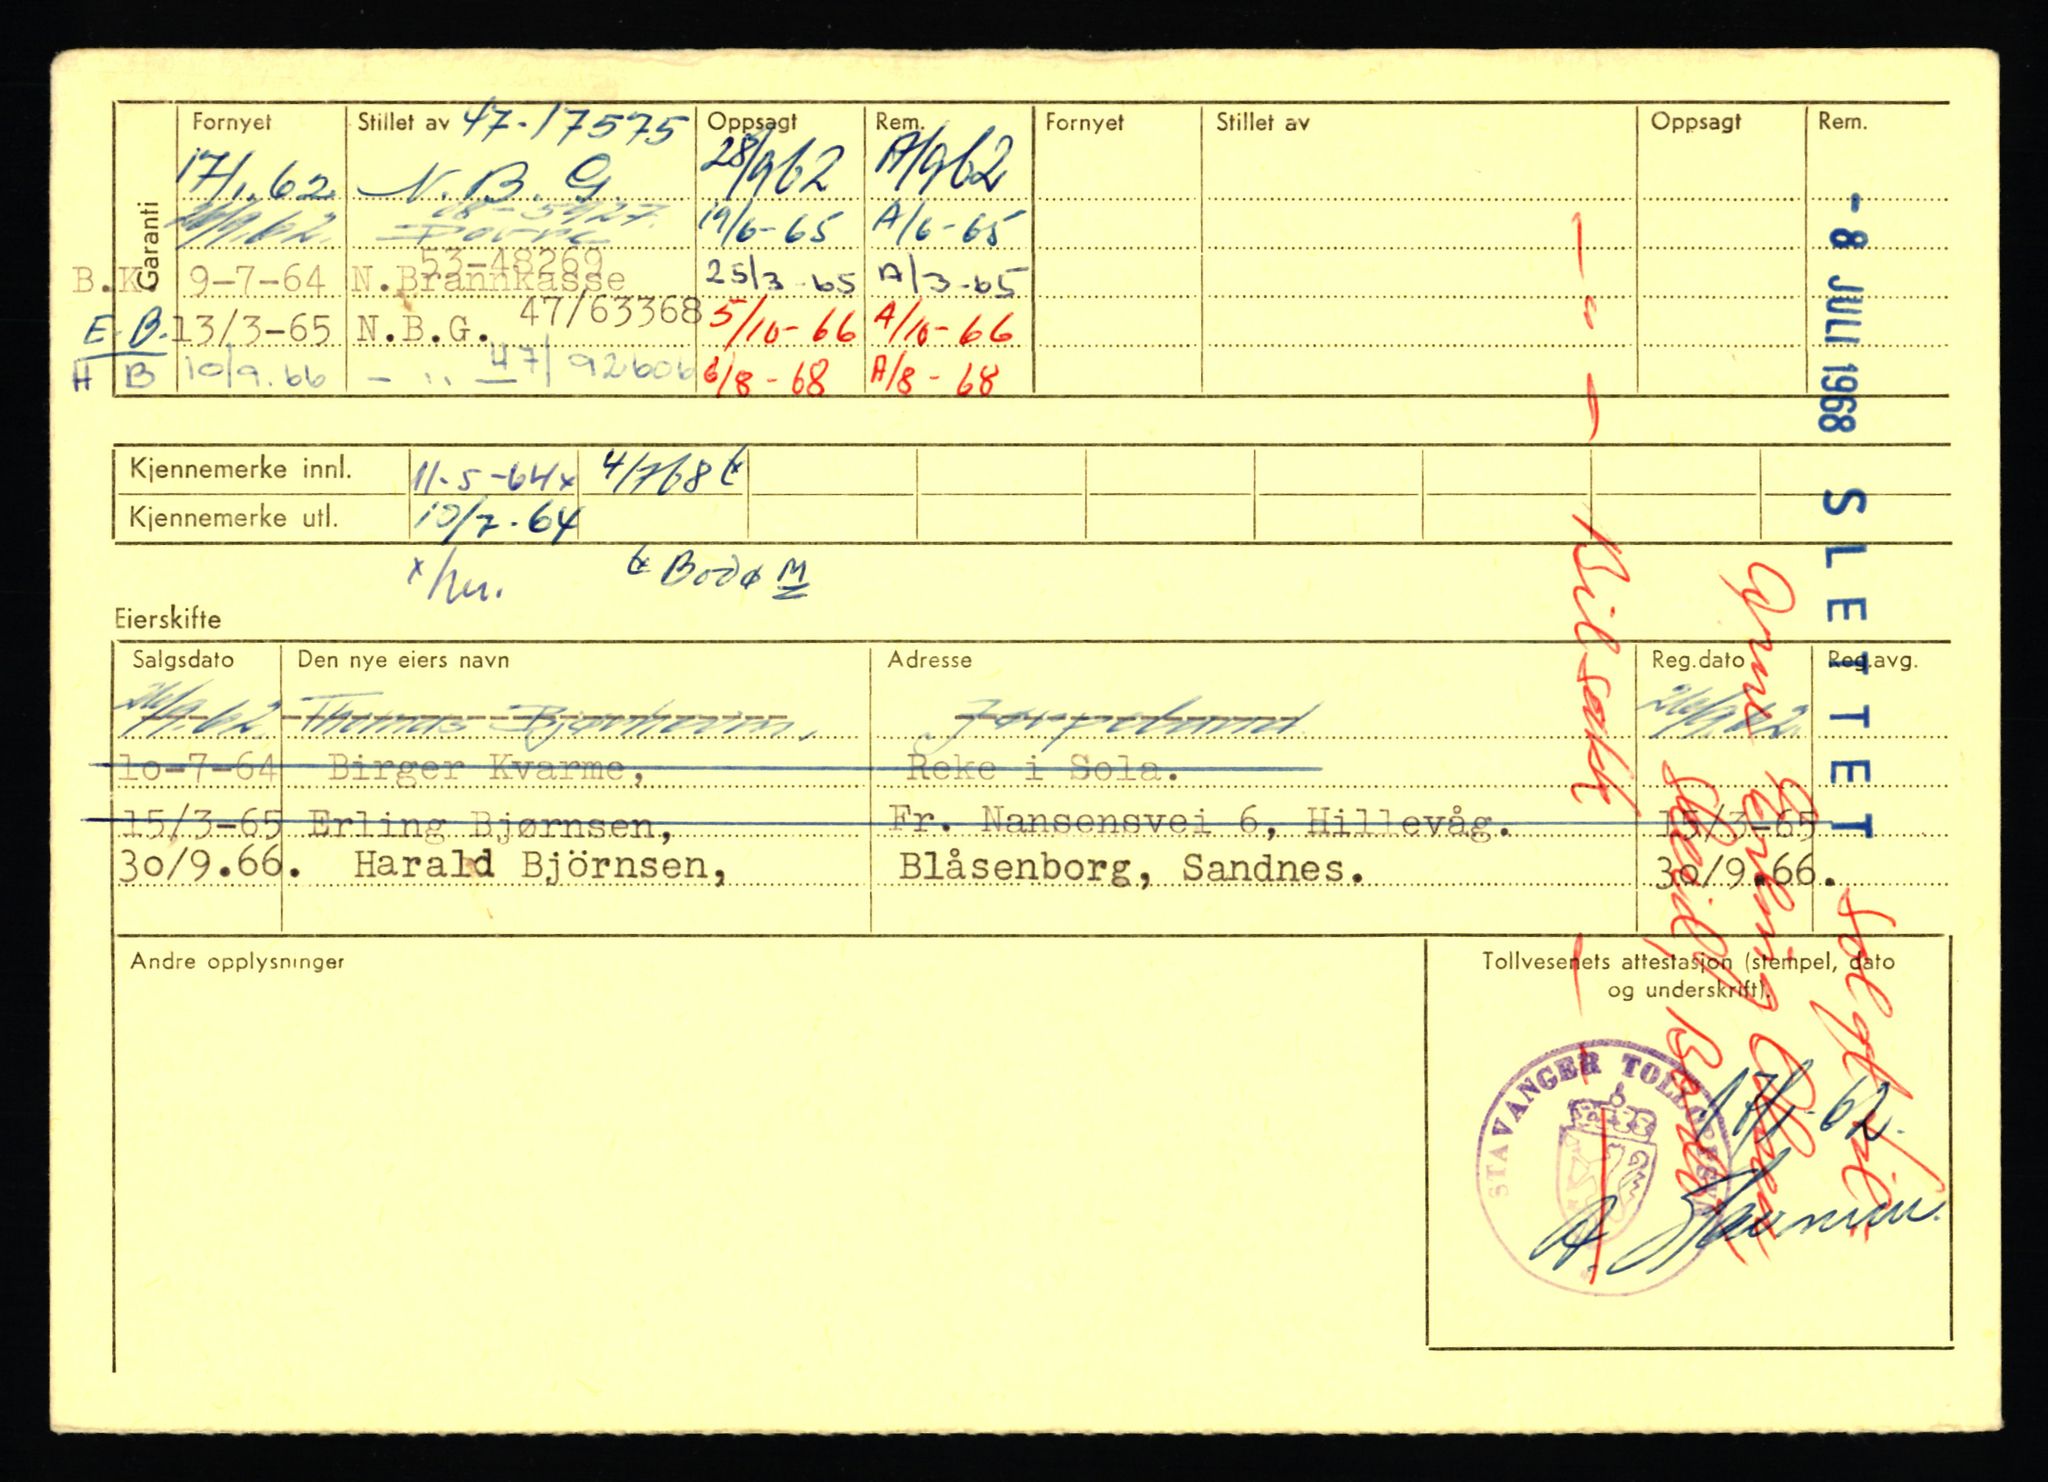 Garanti
Fornyet Stillet av 47-17575 Oppsagt Rem. Fornyet Stillet av Oppsagt Rem.
17/1.62 N.B.G. 28/9 62 A/9 62
26/9.62. 19/6-65 A/6-65
53-48269
B.K. 9-7-64 N.Brannkasse 25/3-65 A/3-65
E.B. 13/3-65 N.B.G. 47/63368 5/10-66 A/10-66
H B 10/9.66 - " - 47/92606 6/8-68 A/8-68
Kjennemerke innl. 11-5-64x 4/768
Kjennemerke utl. 10/7-64
Bodø M
Eierskifte
Salgsdato Den nye eiers navn Adresse Reg.dato Reg.avg.
26/9.62. Thomas Bjørheim, Jørpeland 26/9.62.
10-7-64 Birger Kvarme, Reke i Sola.
15/3-65 Erling Bjørnsen, Fr. Nansensvei 6, Hillevåg. 15/3-65
30/9.66. Harald Björnsen, Blåsenborg, Sandnes. 30/9.66.
Andre opplysninger
Tollvesenets attestasjon (stempel, dato
og underskrift).
STAVANGER TOLLOPPSYN
17/1-62.
-8 JULI 1968 SLETTET
Solgt til
Arne Erling Olsen
Bilsakk